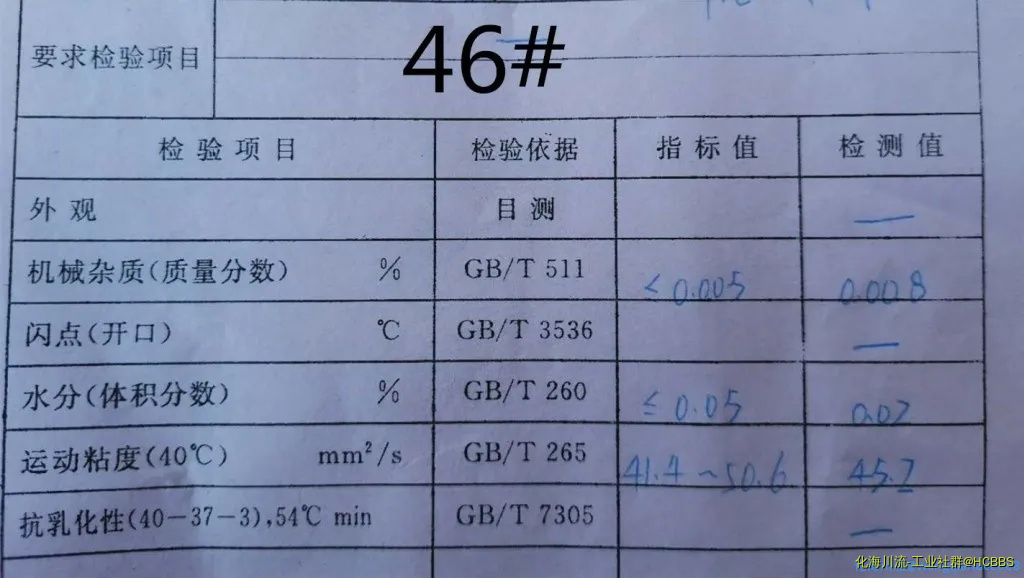 46#
要求检验项目
检验项目 检验依据 指标值 检测值
外观 目测 —
机械杂质(质量分数) % GB/T 511 ≤0.005 0.008
闪点(开口) ℃ GB/T 3536 —
水分(体积分数) % GB/T 260 ≤0.05 0.02
运动粘度(40℃) mm²/s GB/T 265 41.4~50.6 45.2
抗乳化性(40-37-3),54℃ min GB/T 7305 —
化海川流-工业社群@HCBBS